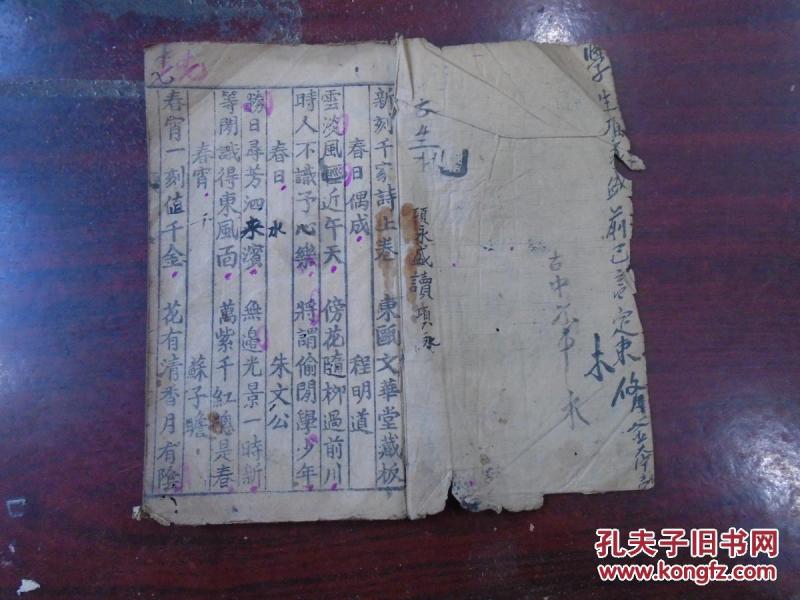 新刻千家詩上卷 東甌文華堂藏板
春日偶成 程明道
雲淡風輕近午天 傍花隨柳過前川
時人不識予心樂 將謂偷閒學少年
春日 朱文公
勝日尋芳泗水濱 無邊光景一時新
等閒識得東風面 萬紫千紅總是春
春宵 蘇子瞻
春宵一刻值千金 花有清香月有陰
項永盛讀項永
古中
永
學生
前已言定束脩金
木
孔夫子旧书网
www.kongfz.com